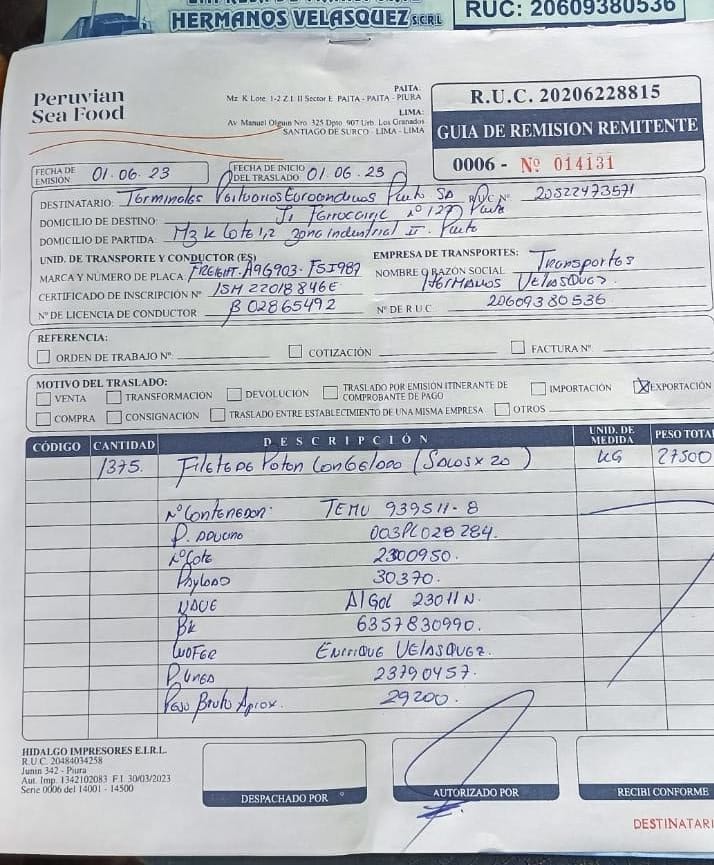 HERMANOS VELASQUEZ S.C.R.L.
RUC: 20609380536
Peruvian
Sea Food
PAITA:
Mz K Lote 1-2 Z.I. II Sector E PAITA - PAITA - PIURA
LIMA:
Av Manuel Olguin Nro. 325 Dpto 907 Urb. Los Granados
SANTIAGO DE SURCO - LIMA - LIMA
R.U.C. 20206228815
GUIA DE REMISION REMITENTE
0006 - Nº 014131
FECHA DE EMISIÓN 01.06.23
FECHA DE INICIO DEL TRASLADO 01.06.23
DESTINATARIO: Terminales Portuarios Euroandinos Paita SA R.U.C. Nº 20522473571
DOMICILIO DE DESTINO: Jr Ferrocarril nº 127 Paita
DOMICILIO DE PARTIDA: Mz K Lote 1,2 zona Industrial II. Paita
UNID. DE TRANSPORTE Y CONDUCTOR (ES)
MARCA Y NÚMERO DE PLACA FREIGHT. A9G903 - FSI987
CERTIFICADO DE INSCRIPCIÓN Nº 15M22018846E
Nº DE LICENCIA DE CONDUCTOR B 02865492
EMPRESA DE TRANSPORTES: Transportes
NOMBRE O RAZÓN SOCIAL Hermanos Velasquez.
Nº DE R U C 20609380536
REFERENCIA:
ORDEN DE TRABAJO Nº
COTIZACIÓN
FACTURA Nº
MOTIVO DEL TRASLADO:
VENTA
TRANSFORMACIÓN
DEVOLUCIÓN
TRASLADO POR EMISIÓN ITINERANTE DE COMPROBANTE DE PAGO
IMPORTACIÓN
X EXPORTACIÓN
COMPRA
CONSIGNACIÓN
TRASLADO ENTRE ESTABLECIMIENTO DE UNA MISMA EMPRESA
OTROS
CÓDIGO CANTIDAD DESCRIPCIÓN UNID. DE MEDIDA PESO TOTA
1375. Filete de Poton Congelado (Sacos x 20) KG 27500
Nº Contenedor: TEMU 939511-8
P. Aduana 003PL028284.
Nº Lote 2300950.
Payload 30370.
NAVE Algol 23011N.
BK 6357830990.
CHOFER ENRIQUE VELASQUEZ.
P. Linea 23790457.
Peso Bruto Aprox. 29200.
HIDALGO IMPRESORES E.I.R.L.
R.U.C. 20484034258
Junin 342 - Piura
Aut. Imp. 1342102083 F.I. 30/03/2023
Serie 0006 del 14001 - 14500
DESPACHADO POR
AUTORIZADO POR
RECIBI CONFORME
DESTINATARI